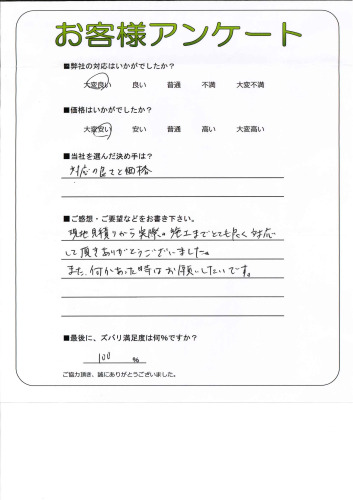 お客様アンケート
■弊社の対応はいかがでしたか？
大変良い 良い 普通 不満 大変不満
■価格はいかがでしたか？
大変安い 安い 普通 高い 大変高い
■当社を選んだ決め手は？
対応の良さと価格
■ご感想・ご要望などをお書き下さい。
現地見積りから実際の施工までとても良く対応
して頂きありがとうございました。
また、何かあった時はお願いしたいです。
■最後に、ズバリ満足度は何％ですか？
100 ％
ご協力頂き、誠にありがとうございました。